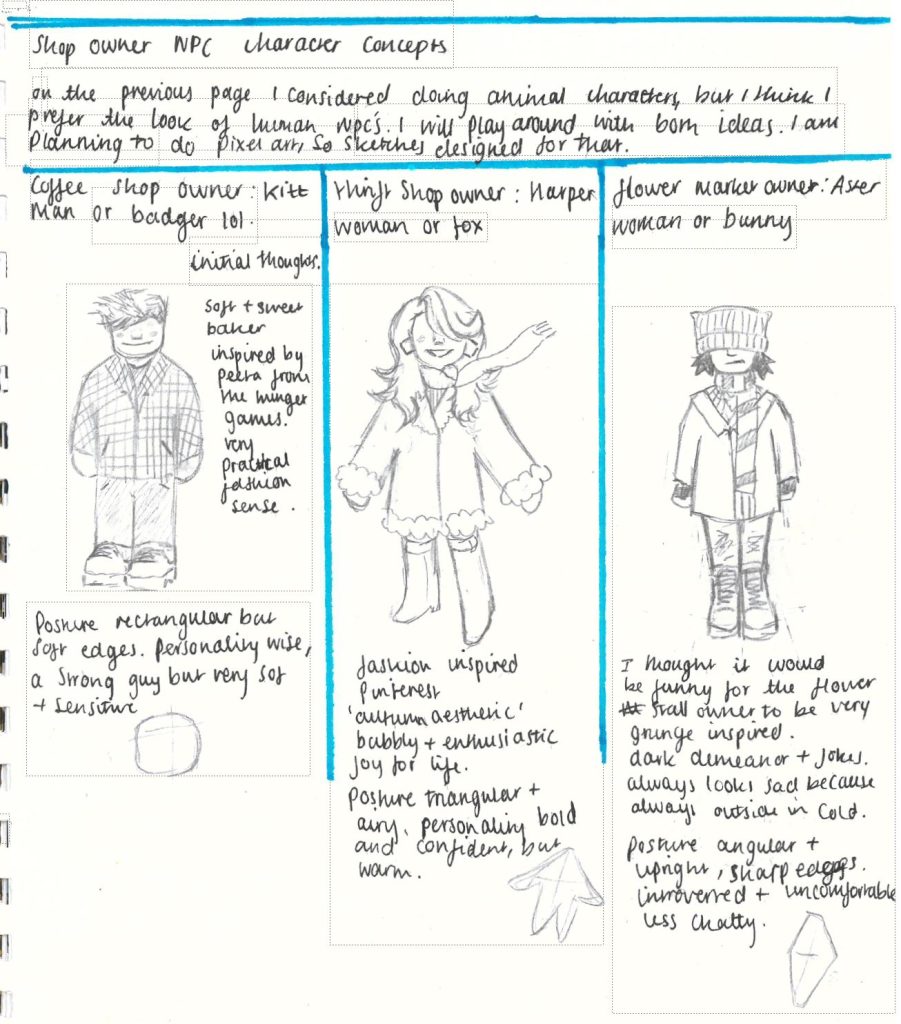 Shop owner NPC character concepts
on the previous page I considered doing animal characters, but I think I
prefer the look of human npc's. I will play around with both ideas. I am
planning to do pixel art, so sketches designed for that.
Coffee shop owner: Kitt
Man or badger lol.
initial thoughts.
soft + sweet
baker
inspired by
peeta from
the hunger
games.
very
practical
fashion
sense.
Posture rectangular but
soft edges. personality wise,
a strong guy but very soft
+ sensitive
thrift shop owner: Harper
woman or fox
fashion inspired
pinterest
'autumn aesthetic'
bubbly + enthusiastic
joy for life.
posture triangular +
airy, personality bold
and confident, but
warm.
flower market owner: Aster
woman or bunny
I thought it would
be funny for the flower
stall owner to be very
grunge inspired.
dark demeanor + jokes.
always looks sad because
always outside in cold.
posture angular +
upright, sharp edges.
introverted + uncomfortable
less chatty.